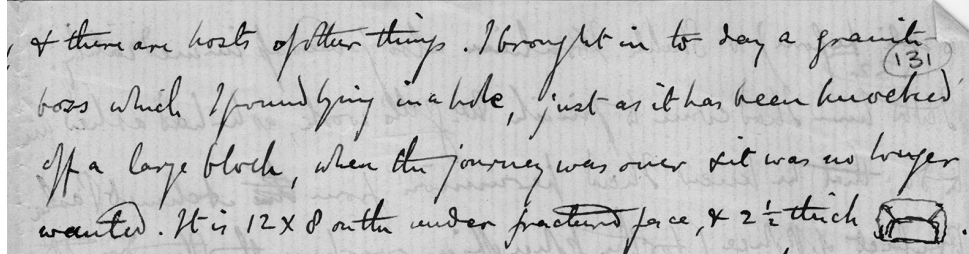 & there are hosts of other things. I brought in to day a granite
131
boss which I found lying in a hole, just as it has been knocked
off a large block, when the journey was over & it was no longer
wanted. It is 12 x 8 on the under fractured face, & 2 ½ thick .